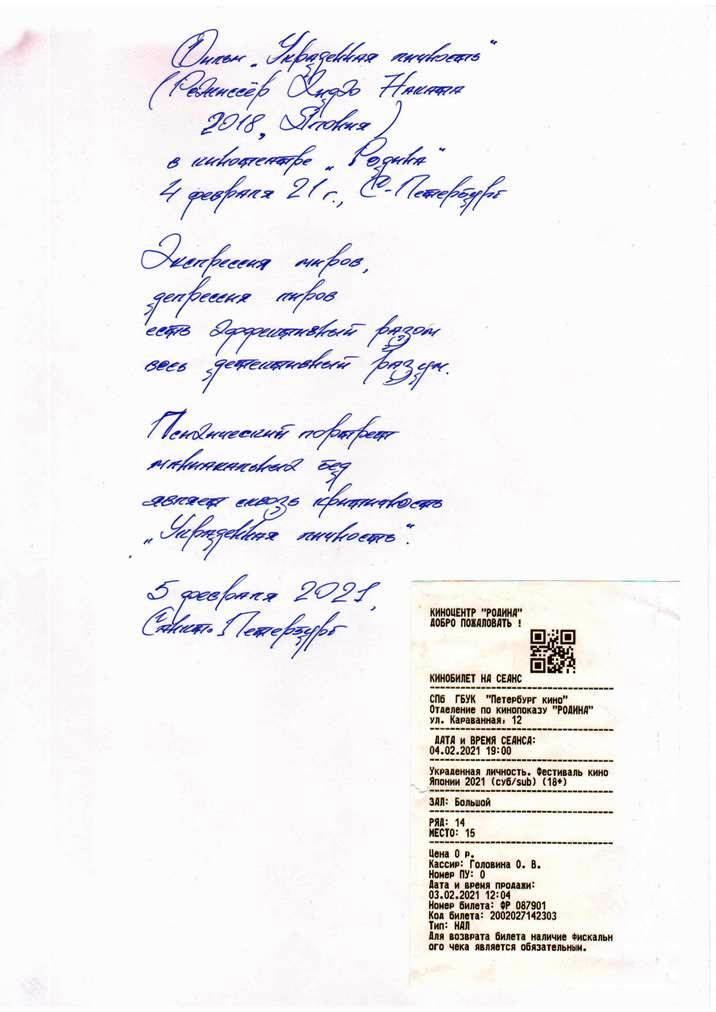 Фильм „Украденная личность"
(Режиссёр Хидэо Наката
2018, Япония)
в киноцентре „Родина"
4 февраля 21 г., С-Петербург
Экспрессия миров,
депрессия пиров
есть эффективный разом
весь детективный разум.
Психический портрет
маниакальный бед
являет сквозь критичность
„Украденная личность".
5 февраля 2021,
Санкт-Петербург
КИНОЦЕНТР "РОДИНА"
ДОБРО ПОЖАЛОВАТЬ !
КИНОБИЛЕТ НА СЕАНС
СПб ГБУК "Петербург кино"
Отделение по кинопоказу "РОДИНА"
ул. Караванная, 12
ДАТА и ВРЕМЯ СЕАНСА:
04.02.2021 19:00
Украденная личность. Фестиваль кино
Японии 2021 (суб/sub) (18+)
ЗАЛ: Большой
РЯД: 14
МЕСТО: 15
Цена 0 р.
Кассир: Головина О. В.
Номер ПУ: 0
Дата и время продажи:
03.02.2021 12:04
Номер билета: ФР 087901
Код билета: 2002027142303
Тип: НАЛ
Для возврата билета наличие фискальн
ого чека является обязательным.